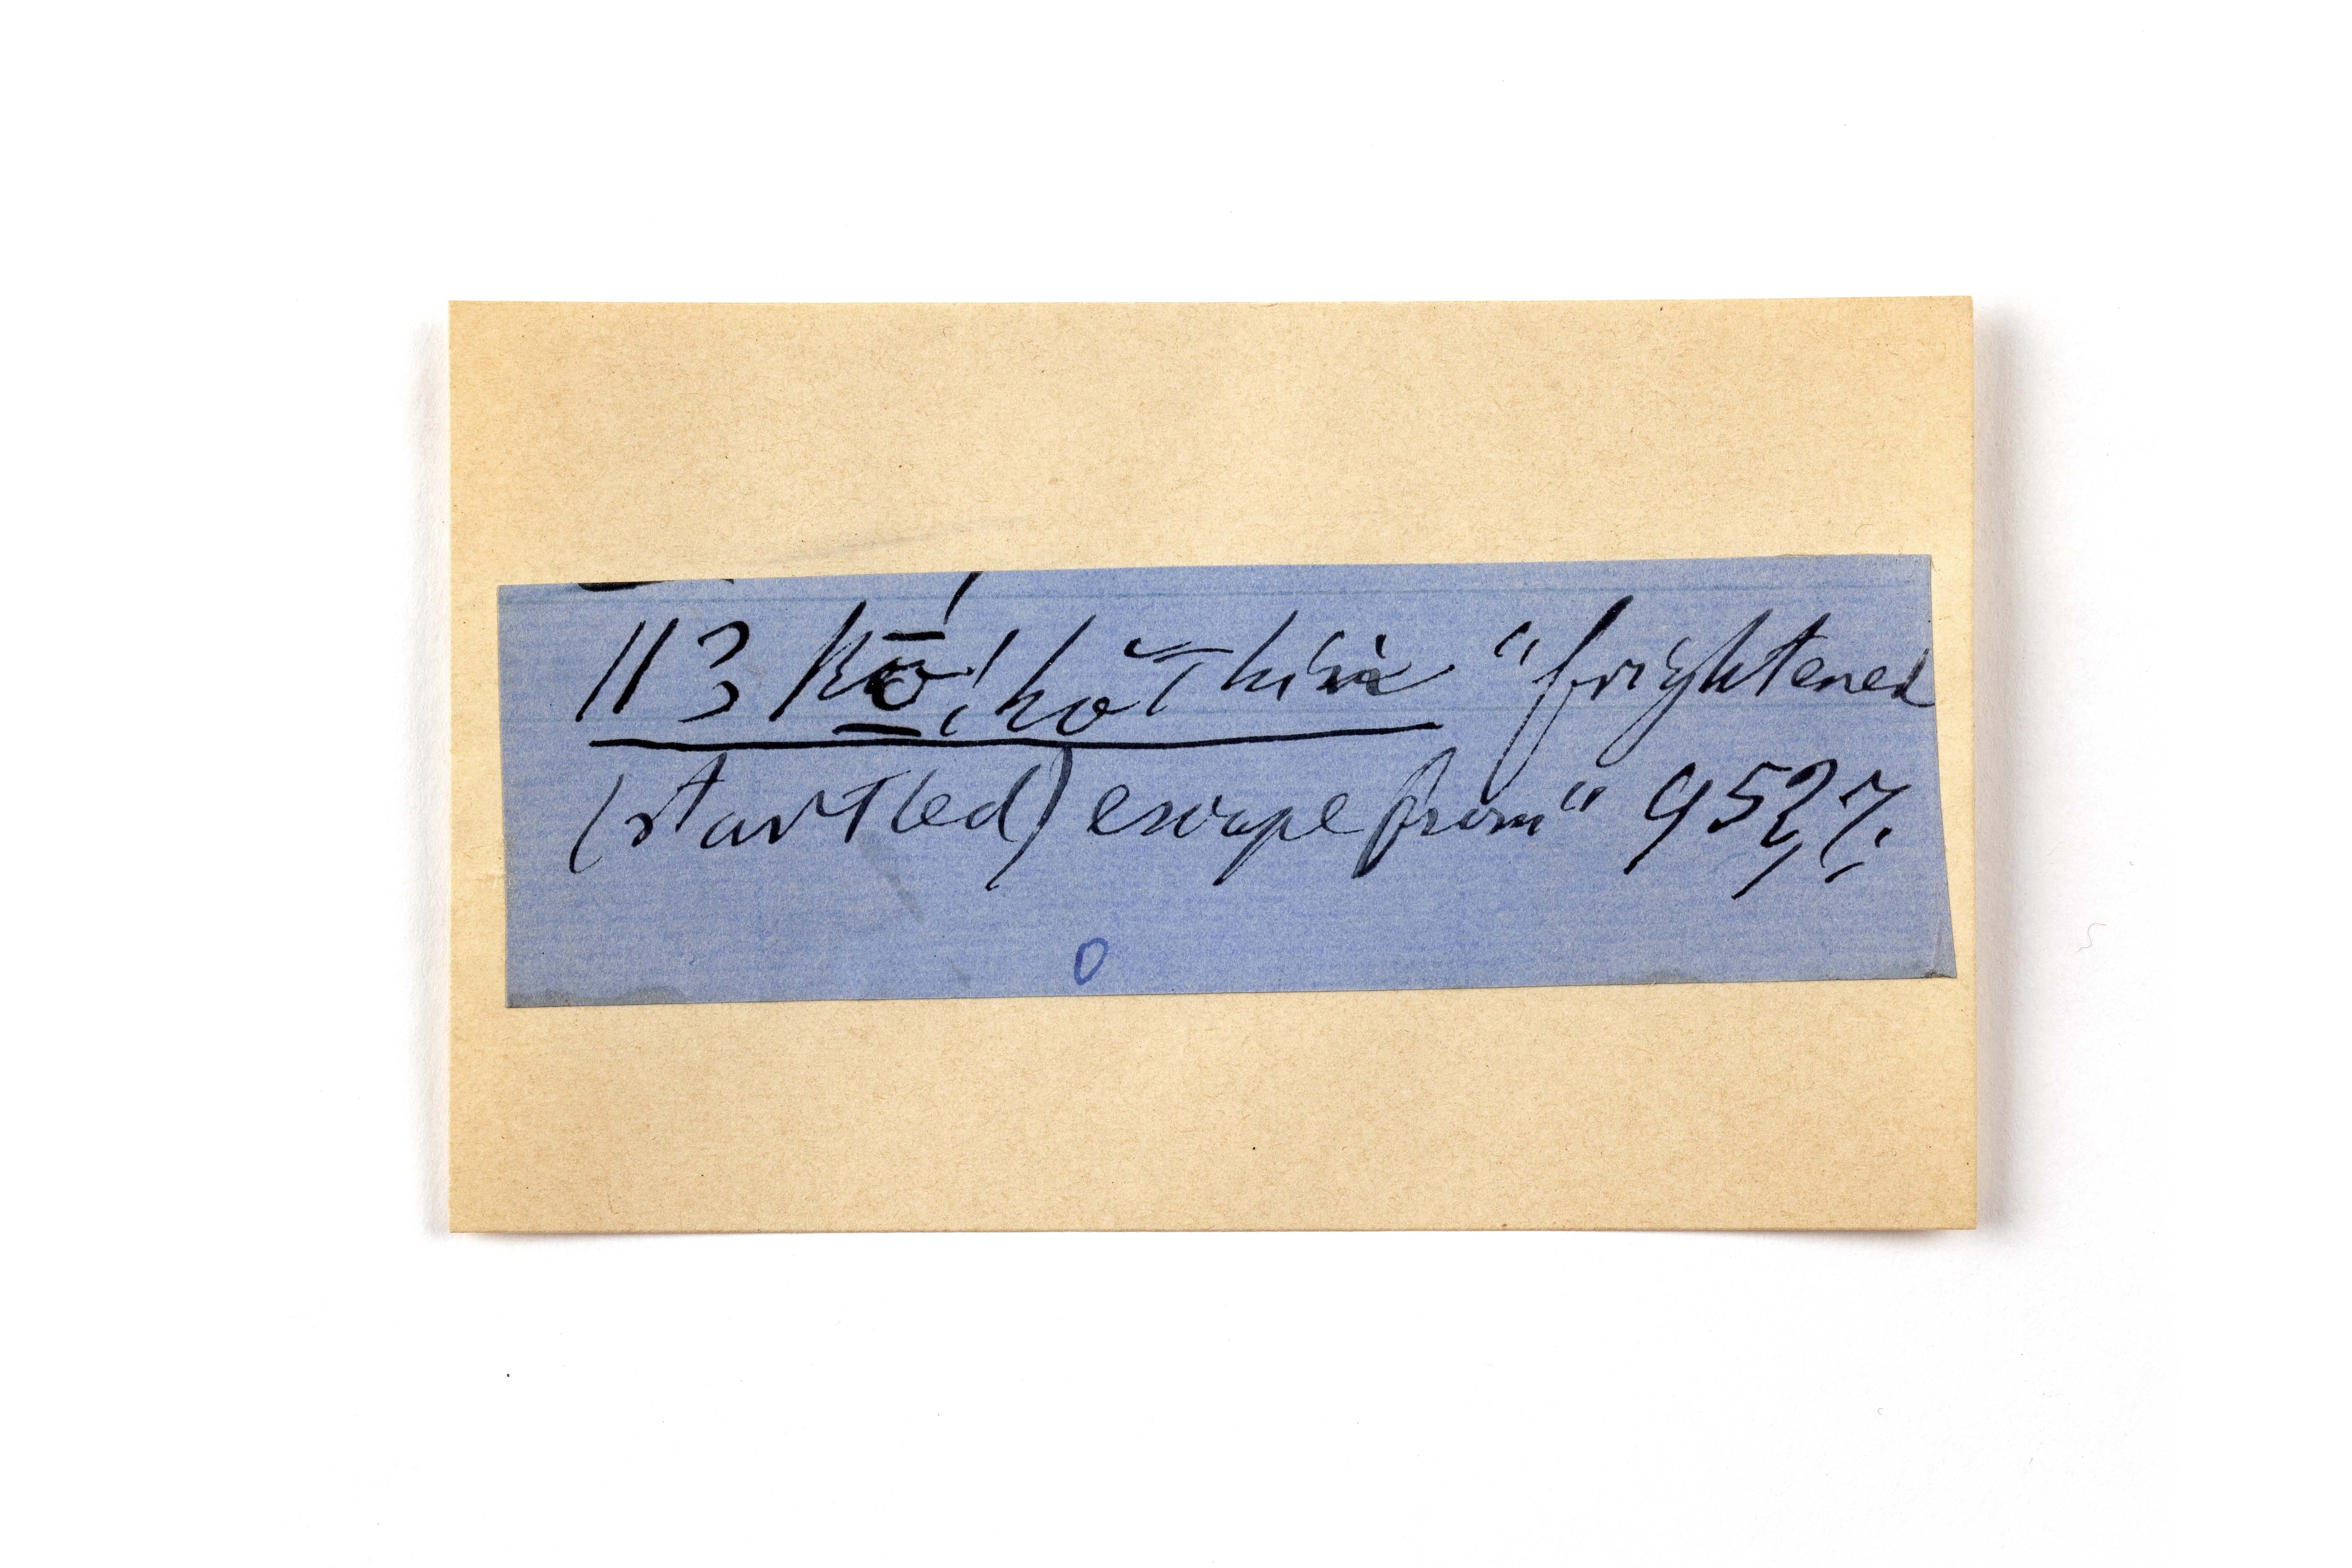 113 kō'hŏThin "frightened
(starTled) escape from" 952,7.
0